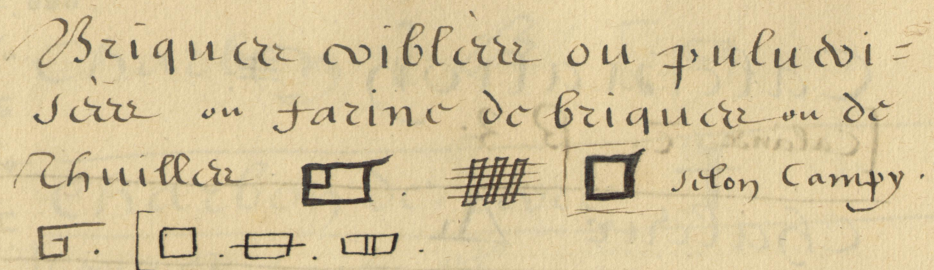 Briques criblées ou pulueri=
sées ou farine de briques ou de
Thuilles . selon Campy.